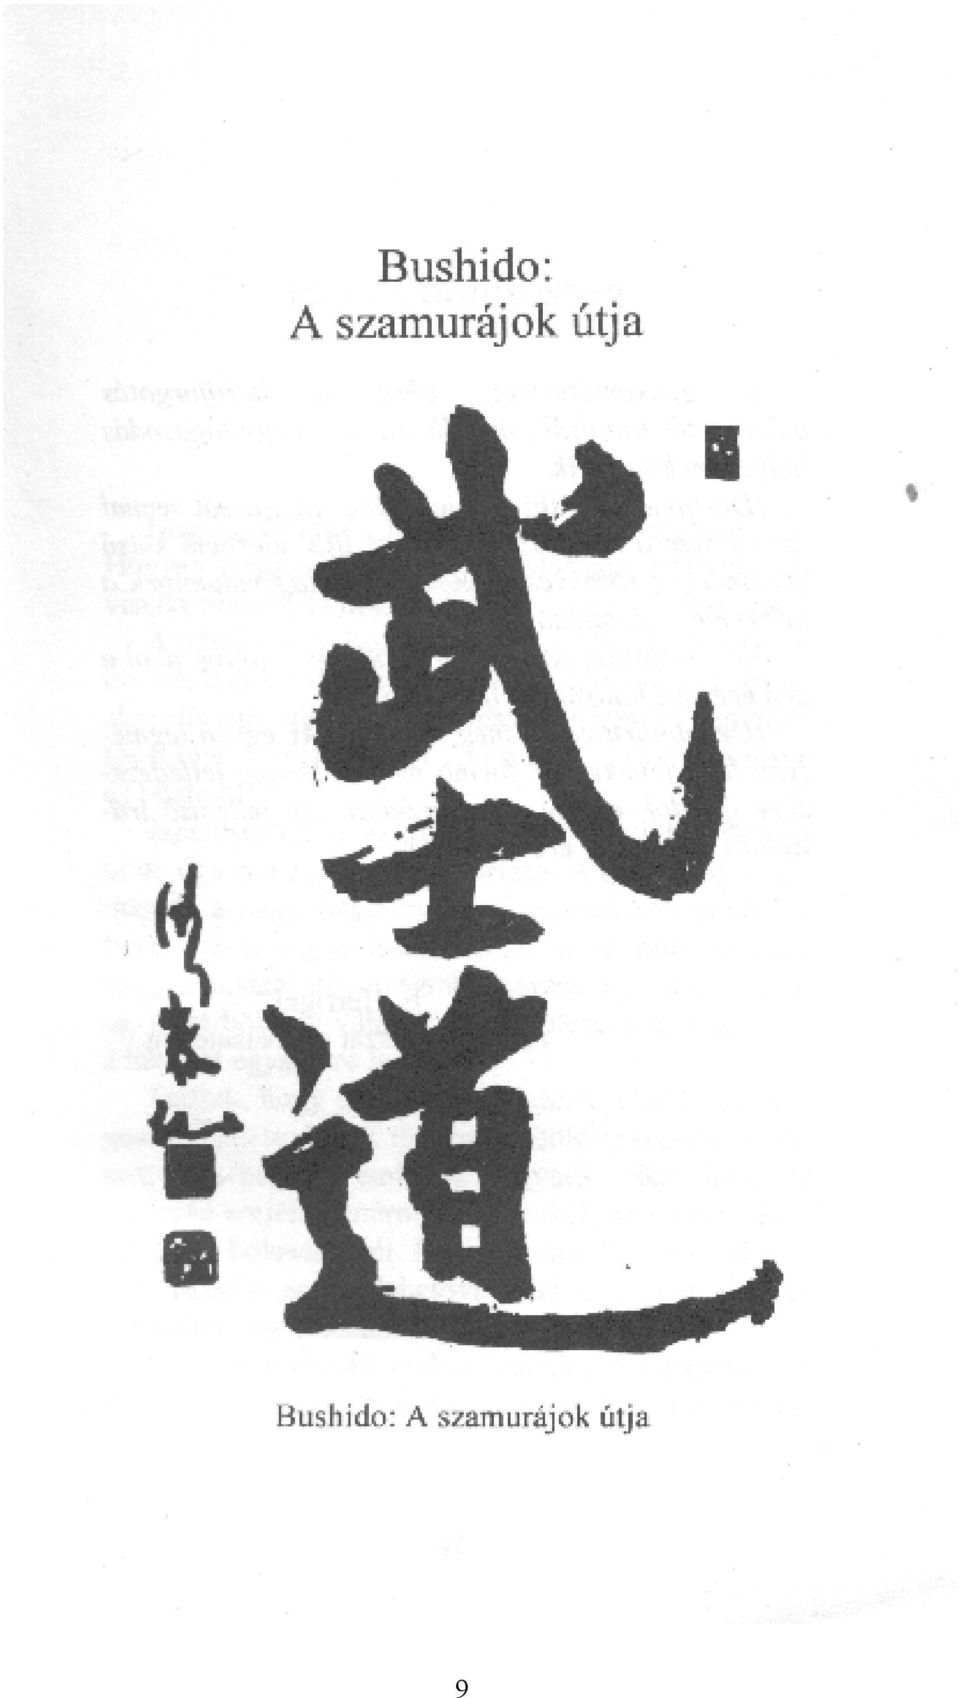 Bushido:
A szamurájok útja
武士道
Bushido: A szamurájok útja
9